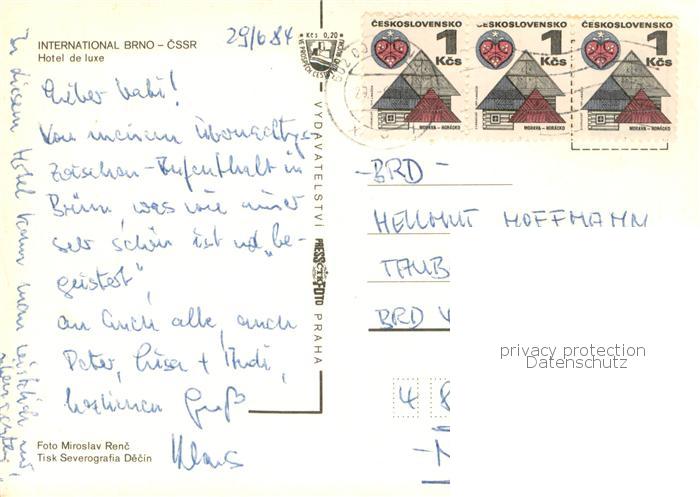 INTERNATIONAL BRNO – ČSSR
Hotel de luxe
29/6 84
Lieber Vati!
Von meinem Übernachtgs
zwischen-Aufenthalt in
Brünn, was wie immer
sehr schön ist u. „be-
geistert",
an Euch alle, auch
Peter, Luisa + Rudi,
herzlichen Gruß
Klaus
In diesem Hotel kann man
Foto Miroslav Renč
Tisk Severografia Děčín
Kčs 0,20
VYDAVATELSTVÍ PRESSFOTO PRAHA
ČTK
ČESKOSLOVENSKO
1 Kčs
MORAVA - HORÁCKO
ČESKOSLOVENSKO
1 Kčs
MORAVA - HORÁCKO
ČESKOSLOVENSKO
1 Kčs
MORAVA - HORÁCKO
-BRD-
HELLMUT HOFFMANN
TAUB
BRD
4 8
privacy protection
Datenschutz